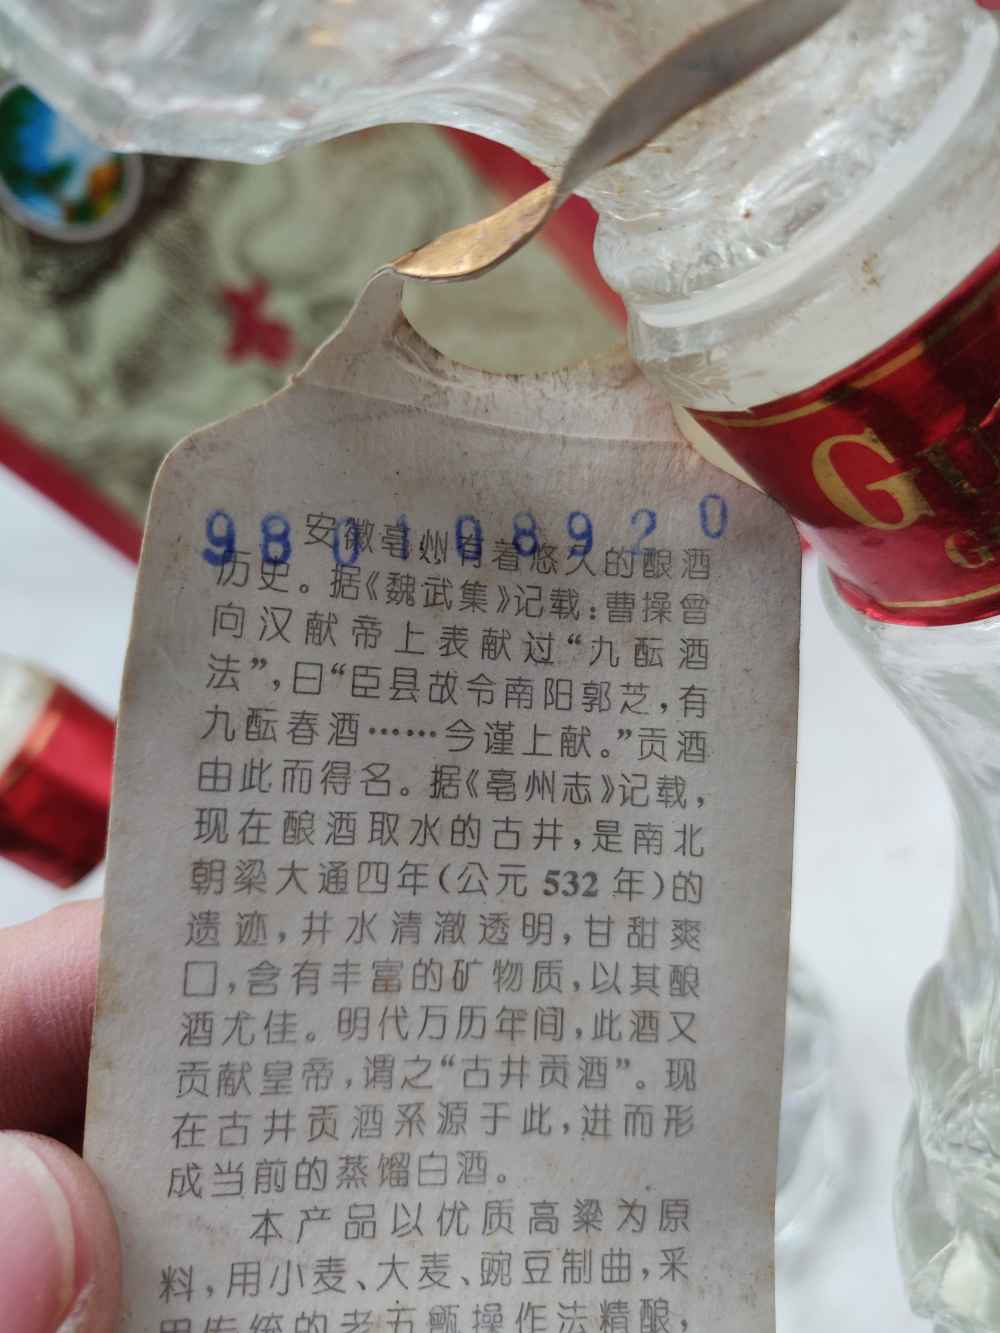 980198920
安徽亳州有着悠久的酿酒
历史。据《魏武集》记载:曹操曾
向汉献帝上表献过“九酝酒
法”,曰“臣县故令南阳郭芝,有
九酝春酒……今谨上献。”贡酒
由此而得名。据《亳州志》记载,
现在酿酒取水的古井,是南北
朝梁大通四年(公元532年)的
遗迹,井水清澈透明,甘甜爽
口,含有丰富的矿物质,以其酿
酒尤佳。明代万历年间,此酒又
贡献皇帝,谓之“古井贡酒”。现
在古井贡酒系源于此,进而形
成当前的蒸馏白酒。
本产品以优质高粱为原
料,用小麦、大麦、豌豆制曲,采
用传统的老五甑操作法精酿,
G
G